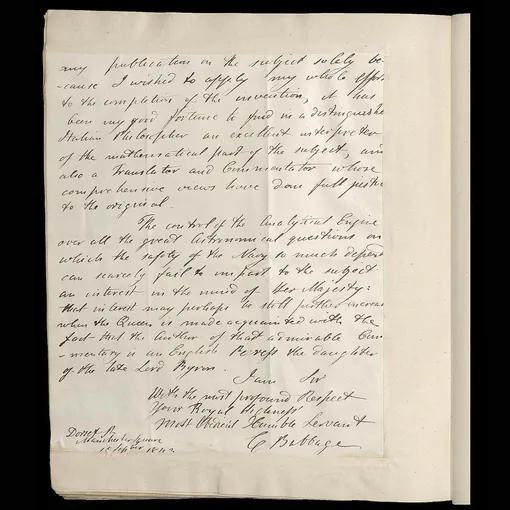 any publication on the subject solely be-
-cause I wished to apply my whole efforts
to the completion of the invention, it has
been my good fortune to find in a distinguished
Italian Philosopher an excellent interpreter
of the mathematical part of the subject, and
also a Translator and Commentator whose
comprehensive views have done full justice
to the original.
The control of the Analytical Engine
over all the great Astronomical questions on
which the safety of the Navy so much depend
can scarcely fail to impart to the subject
an interest in the mind of Her Majesty:
that interest may perhaps be still further increase
when the Queen is made acquainted with the
fact that the Author of that admirable Com
-mentary is an English Peeress the daughter
of the late Lord Byron.
I am Sir
With the most profound Respect
Your Royal Highness'
Most Obedient Humble Servant
C Babbage
Dorset St
Manchester Square
Sept 1843